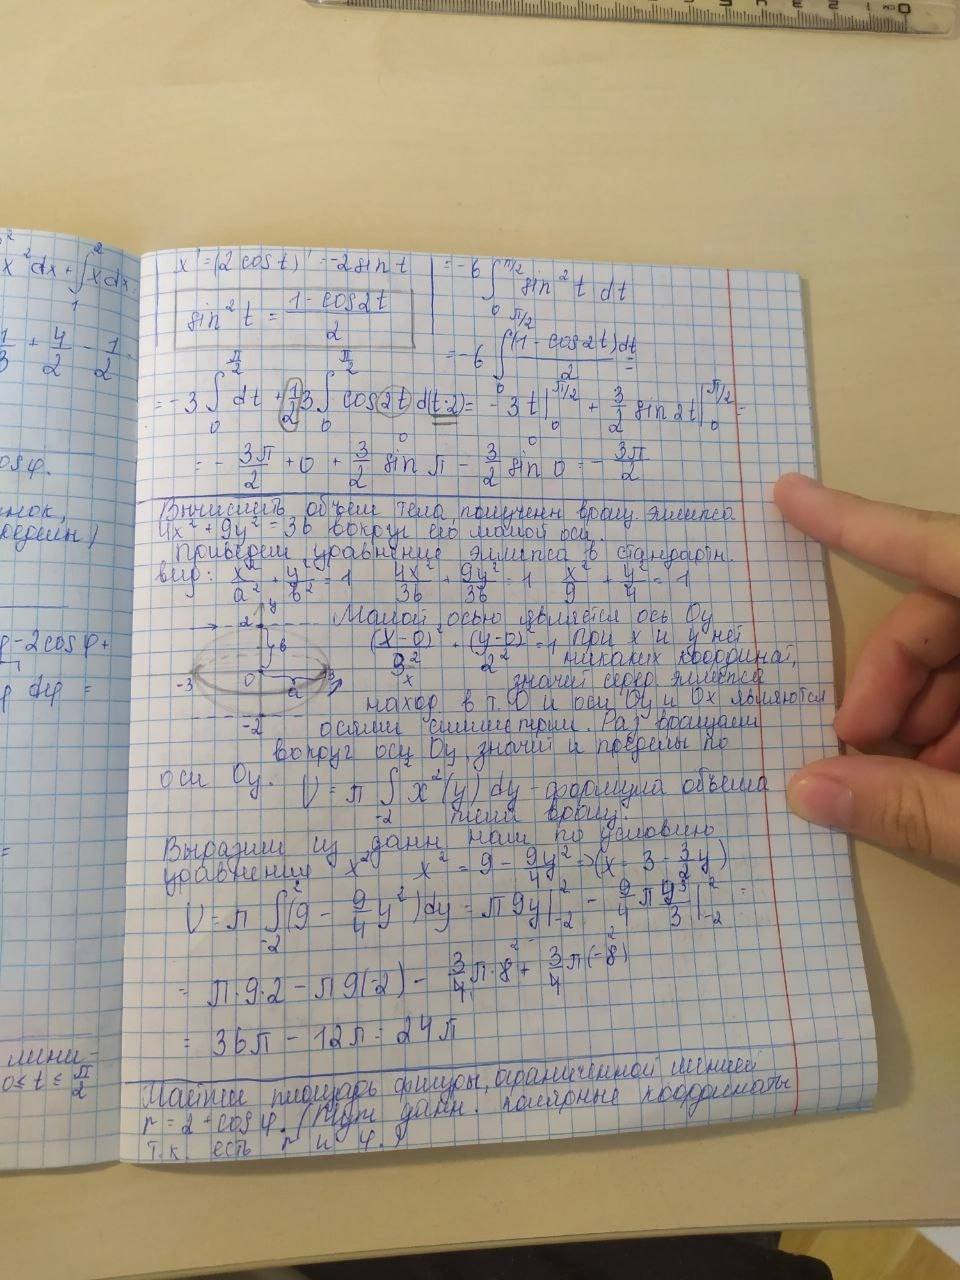 x² dx + ∫₁² x dx
1/3 + 4/2 - 1/2
cos φ.
- 2cos φ +
dφ =
=
лини-
0 ≤ t ≤ π/2
x' = (2 cos t)' = -2 sin t
sin² t = (1 - cos 2t)/2
= -6 ∫₀^(π/2) sin² t dt
= -6 ∫₀^(π/2) (1 - cos 2t) dt / 2 =
= -3 ∫₀^(π/2) dt + 1/2 3 ∫₀^(π/2) cos 2t d(t·2) = -3t |₀^(π/2) + 3/2 sin 2t |₀^(π/2) =
= - 3π/2 + 0 + 3/2 sin π - 3/2 sin 0 = - 3π/2
Вычислить объем тела получен вращ. эллипса
4x² + 9y² = 36 вокруг его малой оси.
Приведем уравнение эллипса в стандартн.
вид: x²/a² + y²/b² = 1 4x²/36 + 9y²/36 = 1 x²/9 + y²/4 = 1
y
2
в
-3
0
a
3
x
-2
Малой осью является ось Oy
(x-0)²/3² + (y-0)²/2² = 1 при x и y нет
никаких координат,
значит серед эллипса
наход в т. O и оси Oy и Ox являются
осями симметрии. Раз вращаем
вокруг оси Oy, значит и пределы по
оси Oy. V = π ∫₋₂² x²(y) dy - формула объема
тела вращ.
Выразим из данн нам по условию
уравнения x² x² = 9 - 9/4 y² → (x = 3 - 3/2 y)
V = π ∫₋₂² (9 - 9/4 y²) dy = π 9y |₋₂² - 9/4 π y³/3 |₋₂² =
= π·9·2 - π9(-2) - 3/4 π·8 + 3/4 π(-8)
= 36π - 12π = 24π
Найти площадь фигуры, ограниченной линией
r = 2 + cos φ. (Тут данн. полярные координаты
т.к. есть r и φ.)